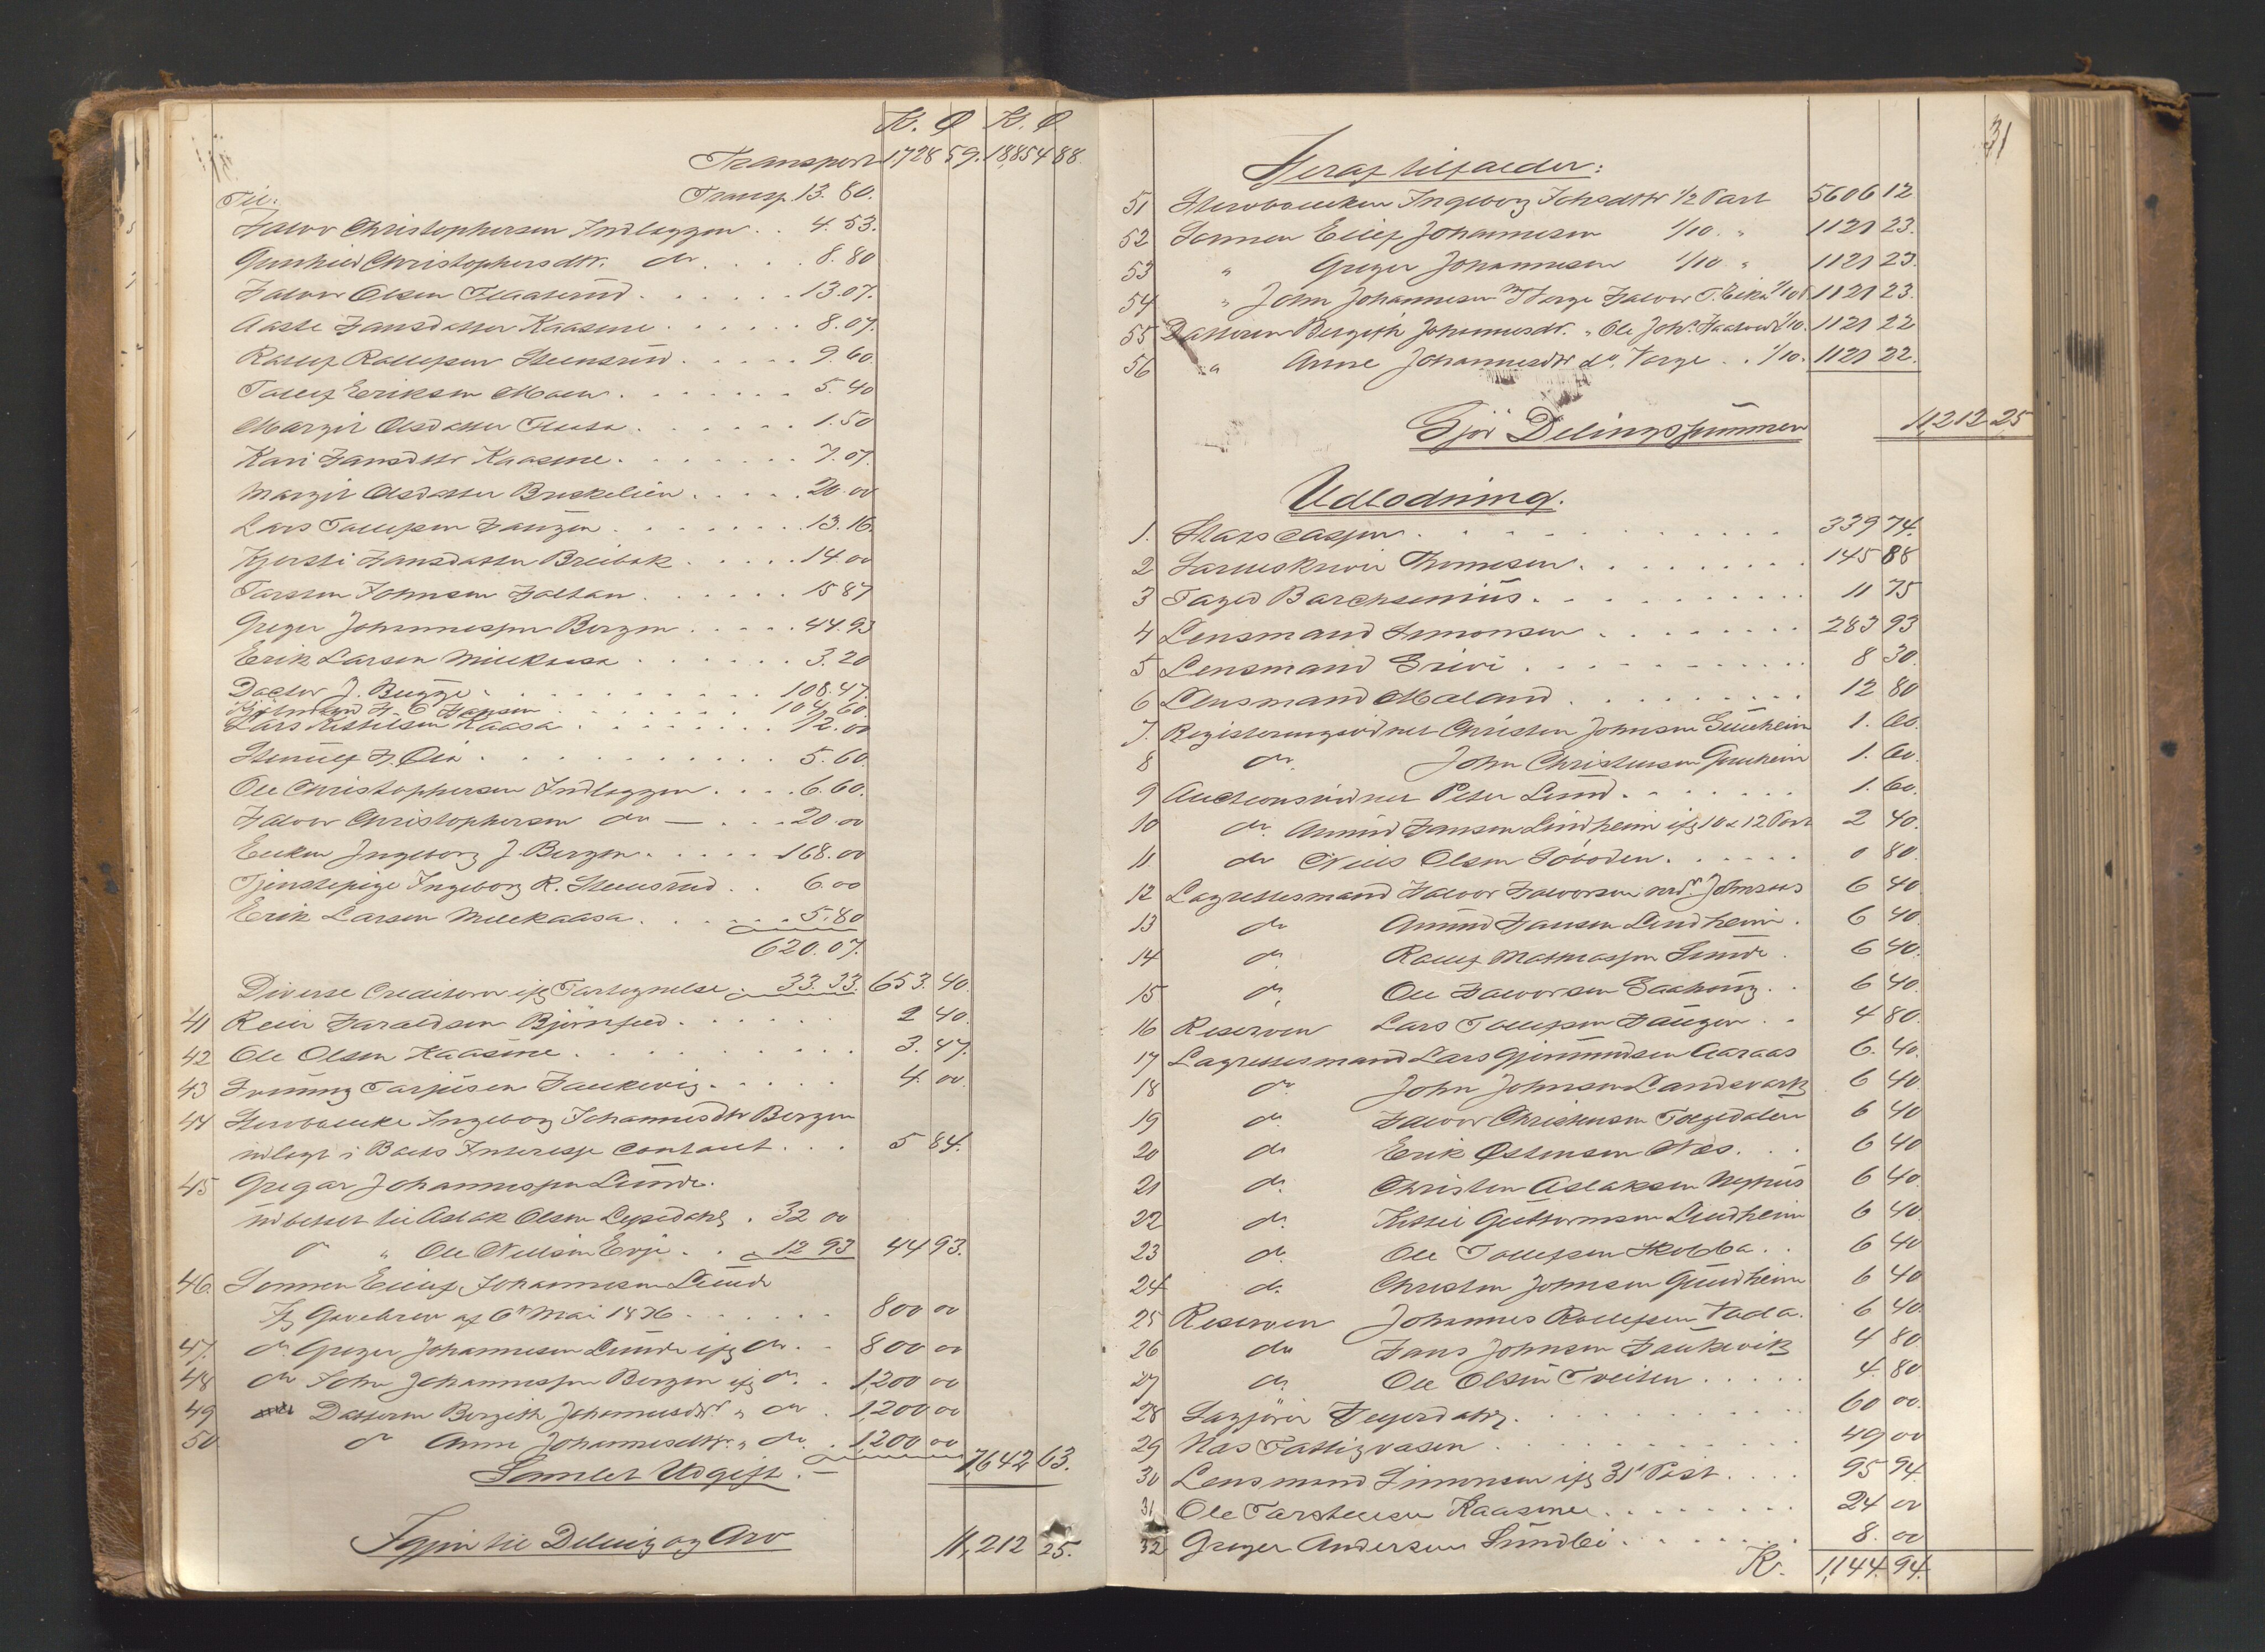 Kr. Ø Kr. Ø
Transport 1728 59. 18854 88
Til: Transp. 13. 80.
Halvor Christophersen Indleggen . . 4. 53.
Gunhild Christophersdtr. do . . . . 8. 80
Halvor Olsen Flaaterud . . . . . . 13.07.
Aaste Hansdatter Kaasene . . . . . . 8.07.
Rollef Rollefsen Steensrud . . . . . 9.60.
Tollef Eriksen Moen . . . . . . . 5.40
Margit Olsdatter Flaata . . . . . . 1.50
Kari Hansdtr Kaasene . . . . . . . 7.07.
Margit Olsdatter Buskelien . . . . . 20.00
Lars Tollefsen Haugen . . . . . . . 13.16.
Kjersti Hansdatter Breibak . . . . . 14.00
Tarsten Johnsen Holtan . . . . . . 15 87
Greger Johannessen Bergen . . . . . 44.93
Erik Larsen Millekaasa . . . . . . 3.20
Doctor J. Bugge . . . . . . . . . . 108.47.
H. C. Hansen . . . . . . . 104.60.
Lars Kittilsen Kaasa . . . . . . . . 12.00
H. Øia . . . . . . . . . . 5.60
Ole Christophersen Indleggen . . . . 6.60.
Halvor Christophersen do — . . . 20.00
Enken Ingeborg J. Bergen . . . . . 168.00
Tjenstepige Ingeborg R. Steensrud . . 6.00
Erik Larsen Millekaasa . . . . . . 5.80
620.07.
Diverse Creditorer ifg Fortegnelse . 33.33. 653. 40.
41 Reier Haraldsen Bjørnfeld . . . . . . 2 40.
42 Ole Olsen Kaasene . . . . . . . . . . 3. 47.
43 Tarjusen Haukevig . . . . . . 4. 00.
44 Stervboenke Ingeborg Johannesdtr Bergen
indlagt i Boets Interesse contant . . . 5 84.
45 Gregar Johannessen Lunde.
udbetalt til Aslak Olsen Lysedahl . 32 00
d " Ole Nielsen Evje . . 12 93 44 93.
46. Sønnen Eilef Johannesen Lunde
Fg Gavebrev af 6te Mai 1876 . . . . . . 800 00
47. do Greger Johannesen Lunde ifg do . . 800 00
48 do John Johannessen Bergen ifg do . . 1,200 00
49 Datteren Bergith Johannesdtr " do . 1,200 00
50 do Anne Johannesdtr. " do . . 1,200 00
Samlet Udgift . — 7,642 63.
Igjen til Deling og Arv 11,212 25.
31
Heraf tilfalder:
51 Stervboenken Ingeborg Johsdtr 1/2 Part 5606 12
52 Sønnen Eilef Johannesen 1/10 " 1121 23.
53 " Greger Johannesen 1/10 " 1121 23.
54 " John Johannesen Verge Halvor T. Eika 1/10 1121 23.
55 Datteren Bergith Johannesdtr. " Ole Johs. 1/10. 1121 22
56 " Anne Johannesdtr do. Verge . . 1/10. 1121 22.
Gjør Delingssummen 11,212 25
Udlodning.
1. Statscassen . . . . . . . . . . 339 74.
2 Sorenskriver Thomesen . . . . . . . . 145 88
3 Foged Barchsenius . . . . . . . . . . 11 75
4 Lensmand Simonsen . . . . . . . . 283 93
5 Lensmand Grivi . . . . . . . . . . 8 30.
6 Lensmand Moland . . . . . . . . . 12 80
7. Registeringsvidnet Christen Johnsen Gundheim 1. 60.
8 do. John Christensen Gunheim 1. 60.
9 Auctionsvidnet Peter Lund . . . . . . . 1. 60.
10 do. Amund Hansen Lindheim ifg 10 & 12 Post 2 40.
11 do Niels Olsen Søboden . . . . . . 0 80.
12 Lagrettesmand Halvor Halvorsen Johnsaas 6 40
13 do Amund Hansen Lindheim . 6 40.
14 do Rollef Mathiassen Lunde . 6 40.
15 do. Ole Halvorsen Gaahaug . . 6 40.
16 Reserven Lars Tollefsen Haugen . . 4 80.
17 Lagrettesmand Lars Gjermundsen Aaraas 6. 40.
18 do John Johnsen Landsvark 6 40
19 do. Halvor Christensen Torjedalen 6 40
20 do Erik Østensen Næs . . . 6 40
21 do. Christen Aslaksen Nyhus 6 40.
22 do. Kittil Guttormsen Lindheim 6 40
23 do. Ole Tollefsen Skobba . . 6 40
24 do. Christen Johnsen Gundheim 6 40
25 Reserven Johannes Rollefsen Tada . 6 40.
26 do Hans Johnsen Haukevik 4 80
27 do. Ole Olsen Tveiten . . . . . 4. 80.
28 Sagfører Heyerdahl . . . . . . . . . 60 00.
29 Næs Fattigvæsen . . . . . . . . . 49 00
30 Lensmand Simonsen ifg 31te Post . . . . 95 94.
31 Ole Tarstensen Kaasene . . . . . . . . 24 00
32 Greger Andersen Sundbö . . . . . . . 8. 00
Kr. 1,144. 94.